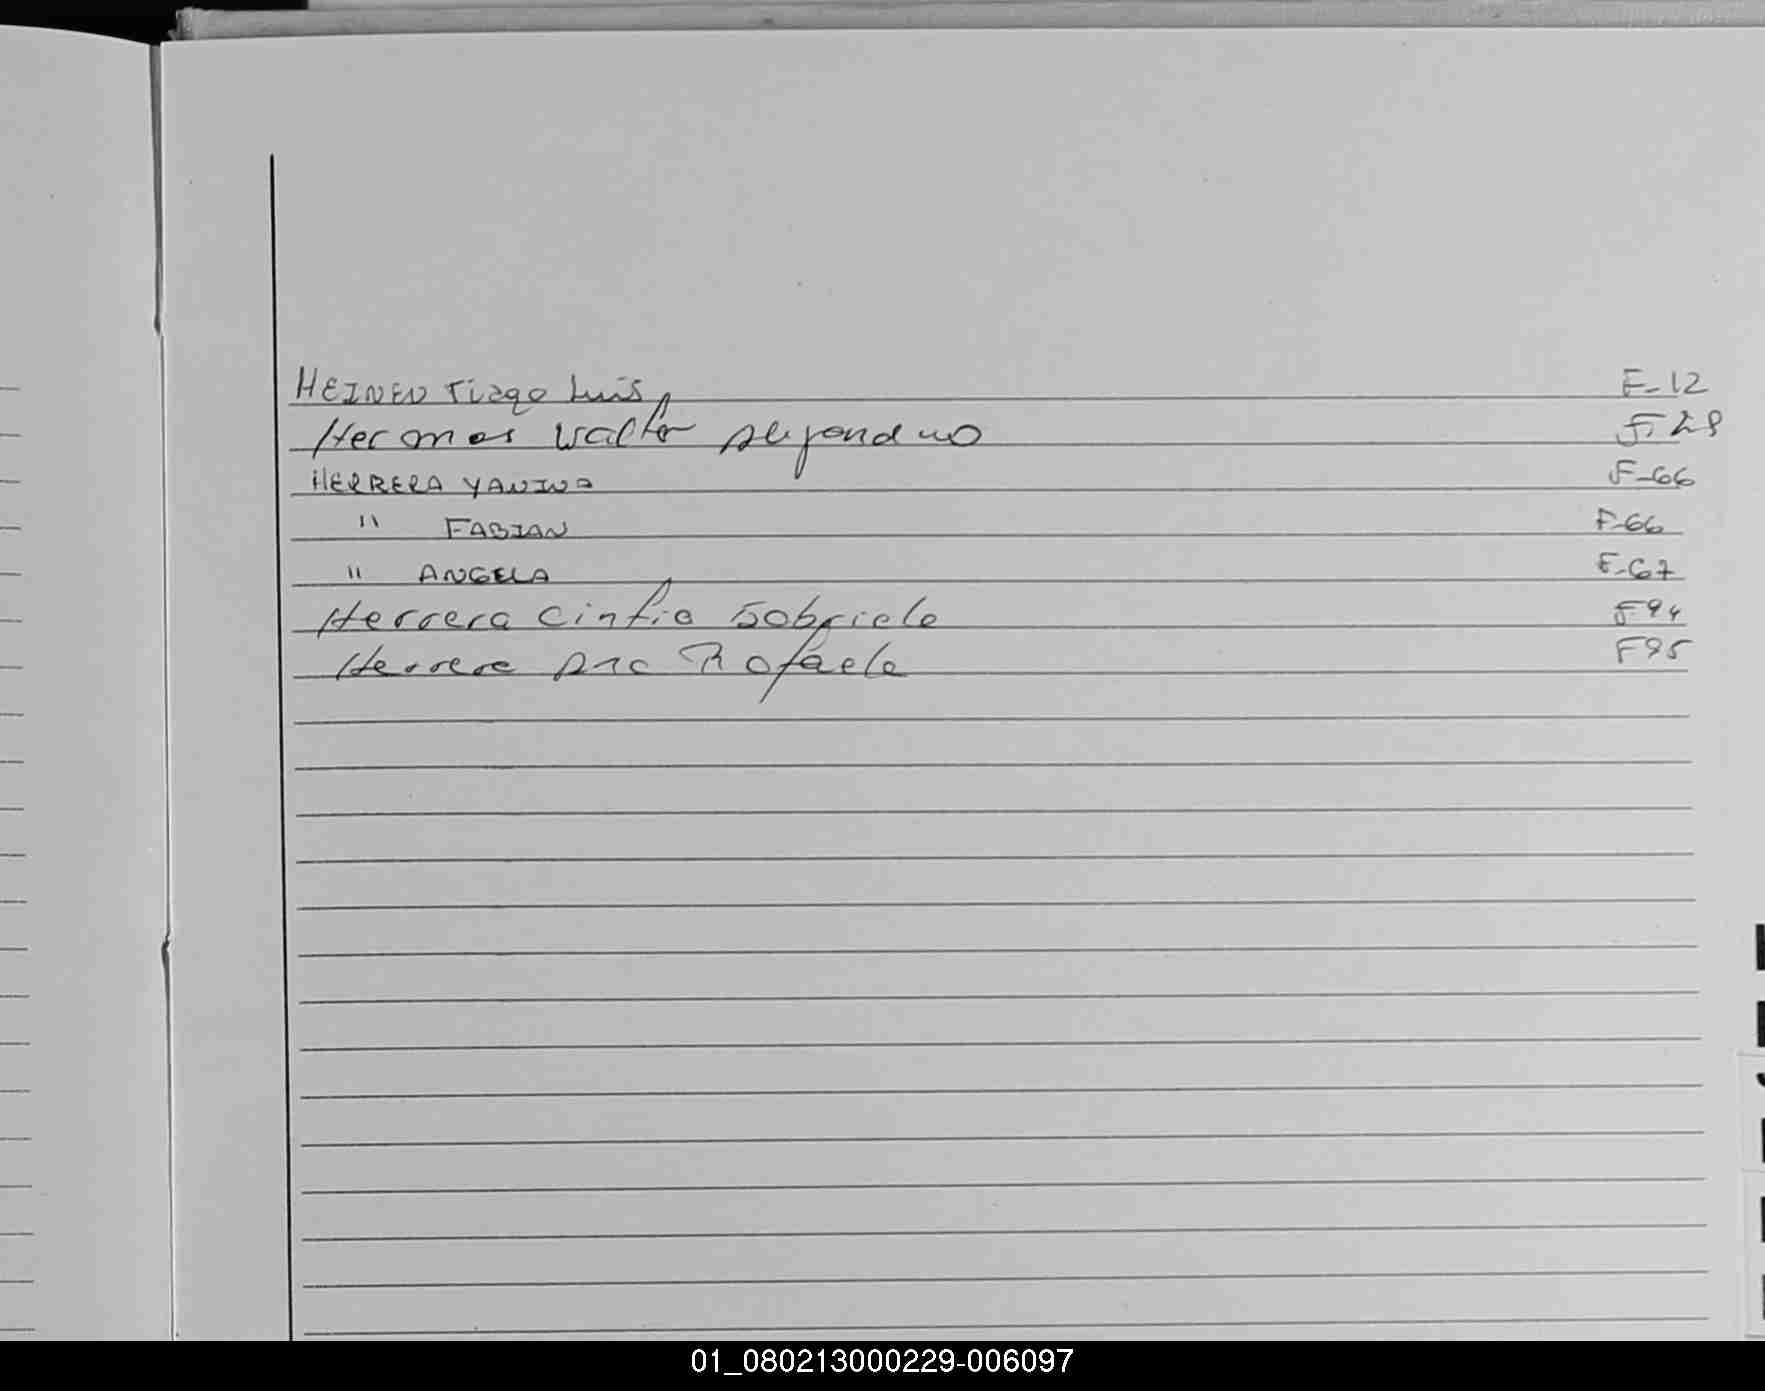 HEINEN Tiago Luis F-12
Hermos Walter Alejandro F. 28
HERRERA YANINA F-66
" FABIAN F-66
" ANGELA F-67
Herrera Cintia Gabriela F94
Herrera Ana Rafaela F95
01_080213000229-006097